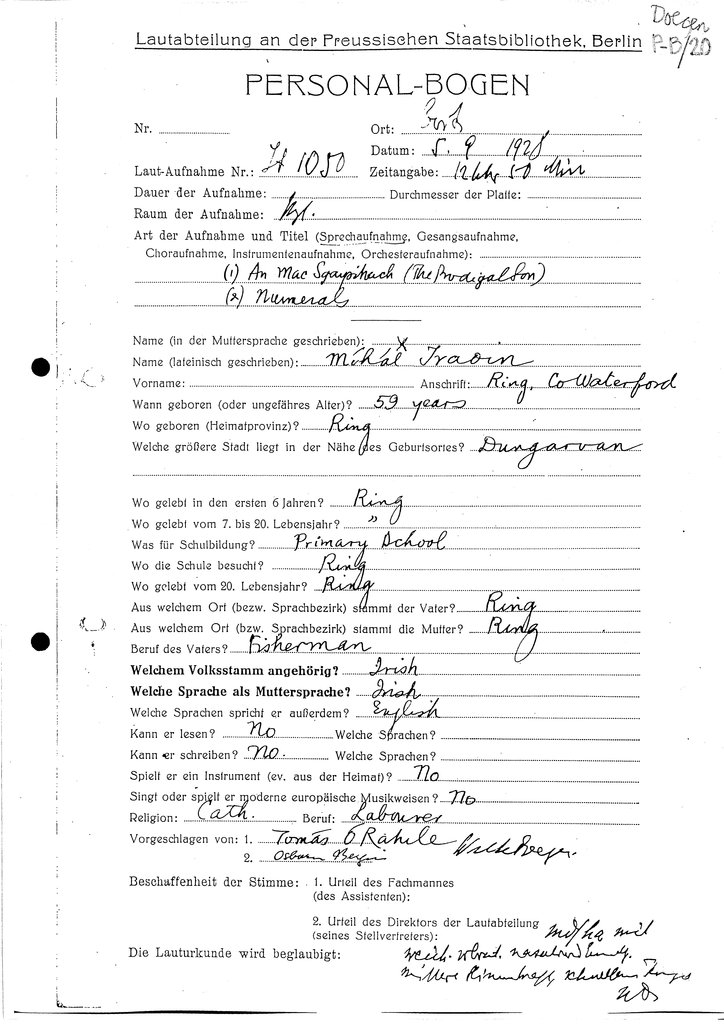 Doegen
P-B/20
Lautabteilung an der Preussischen Staatsbibliothek, Berlin
PERSONAL-BOGEN
Nr. Ort: Cork
Datum: 5. 9 1928
Laut-Aufnahme Nr.: 1050 Zeitangabe: 12 Uhr 50 Min
Dauer der Aufnahme: Durchmesser der Platte:
Raum der Aufnahme:
Art der Aufnahme und Titel (Sprechaufnahme, Gesangsaufnahme,
Choraufnahme, Instrumentenaufnahme, Orchesteraufnahme):
(1) An Mac (The Prodigal Son)
(2) Numerals
Name (in der Muttersprache geschrieben): x
Name (lateinisch geschrieben):
Vorname: Anschrift: Ring, Co Waterford
Wann geboren (oder ungefähres Alter)? 59 years
Wo geboren (Heimatprovinz)? Ring
Welche größere Stadt liegt in der Nähe des Geburtsortes? Dungarvan
Wo gelebt in den ersten 6 Jahren? Ring
Wo gelebt vom 7. bis 20. Lebensjahr? "
Was für Schulbildung? Primary School
Wo die Schule besucht? Ring
Wo gelebt vom 20. Lebensjahr? Ring
Aus welchem Ort (bezw. Sprachbezirk) stammt der Vater? Ring
Aus welchem Ort (bzw. Sprachbezirk) stammt die Mutter? Ring
Beruf des Vaters? Fisherman
Welchem Volksstamm angehörig? Irish
Welche Sprache als Muttersprache? Irish
Welche Sprachen spricht er außerdem? English
Kann er lesen? No Welche Sprachen?
Kann er schreiben? No. Welche Sprachen?
Spielt er ein Instrument (ev. aus der Heimat)? No
Singt oder spielt er moderne europäische Musikweisen? No
Religion: Cath. Beruf: Labourer
Vorgeschlagen von: 1. Tomás Ó Rahile
2. Osborn Bergin
Beschaffenheit der Stimme: 1. Urteil des Fachmannes
(des Assistenten):
2. Urteil des Direktors der Lautabteilung
(seines Stellvertreters):
Die Lauturkunde wird beglaubigt: